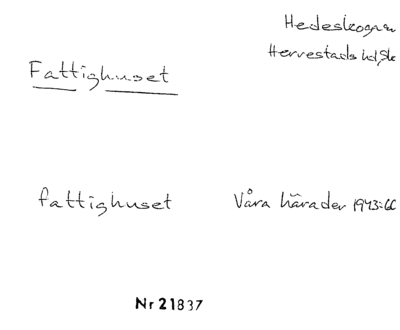 Hedeskogen
Herrestads hd, Sk
Fattighuset
fattighuset Våra härader 1943:60
Nr 21837